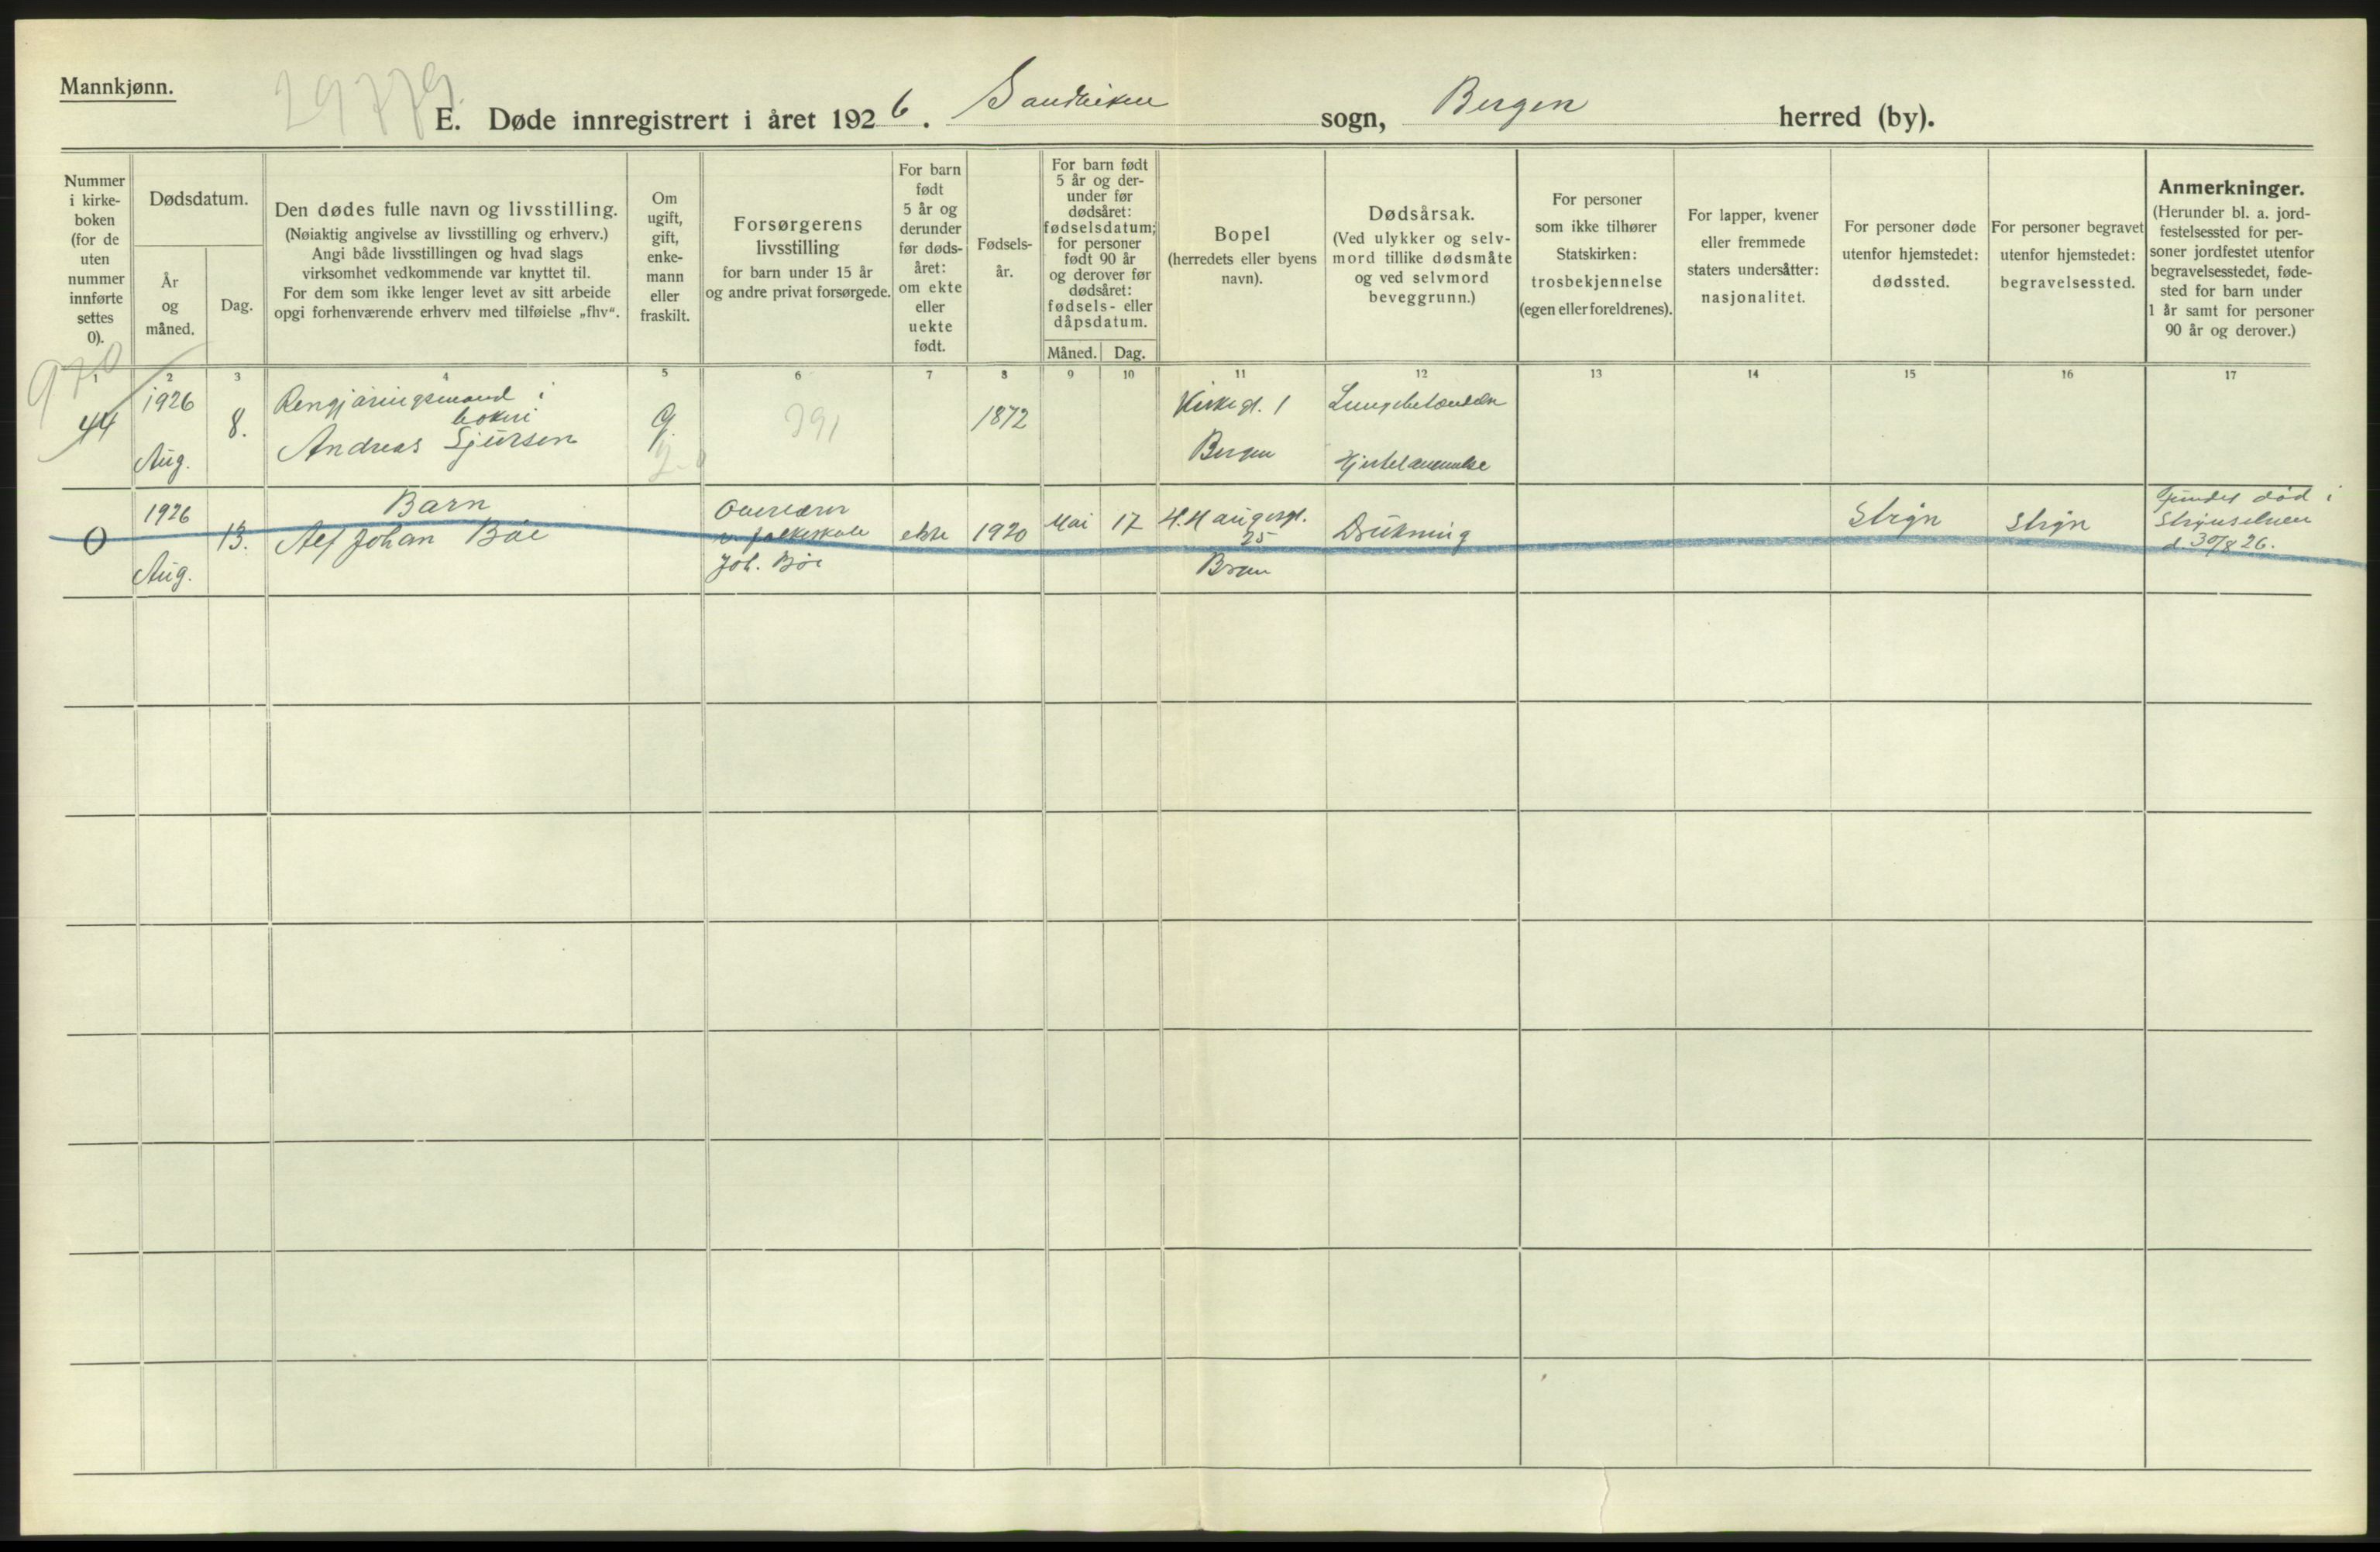 Mannkjønn.
29779.
E. Døde innregistrert i året 1926. Sandviken sogn, Bergen herred (by).
Nummer
i kirke-
boken
(for de
uten
nummer
innførte
settes
0).
Dødsdatum.
År
og
måned.
Dag.
Den dødes fulle navn og livsstilling.
(Nøiaktig angivelse av livsstilling og erhverv.)
Angi både livsstillingen og hvad slags
virksomhet vedkommende var knyttet til.
For dem som ikke lenger levet av sitt arbeide
opgi forhenværende erhverv med tilføielse „fhv“.
Om
ugift,
gift,
enke-
mann
eller
fraskilt.
Forsørgerens
livsstilling
for barn under 15 år
og andre privat forsørgede.
For barn
født
5 år og
derunder
før døds-
året:
om ekte
eller
uekte
født.
Fødsels-
år.
For barn født
5 år og der-
under før
dødsåret:
fødselsdatum;
for personer
født 90 år
og derover før
dødsåret:
fødsels- eller
dåpsdatum.
Måned.
Dag.
Bopel
(herredets eller byens
navn).
Dødsårsak.
(Ved ulykker og selv-
mord tillike dødsmåte
og ved selvmord
beveggrunn.)
For personer
som ikke tilhører
Statskirken:
trosbekjennelse
(egen eller foreldrenes).
For lapper, kvener
eller fremmede
staters undersåtter:
nasjonalitet.
For personer døde
utenfor hjemstedet:
dødssted.
For personer begravet
utenfor hjemstedet:
begravelsessted.
Anmerkninger.
(Herunder bl. a. jord-
festelsessted for per-
soner jordfestet utenfor
begravelsesstedet, føde-
sted for barn under
1 år samt for personer
90 år og derover.)
1 2 3 4 5 6 7 8 9 10 11 12 13 14 15 16 17
970
44
1926
Aug.
8.
Rengjøringsmand i
Andreas Sjursen
g.
391
1872
Kirkegt. 1
Bergen
Lungebetændelse
Hjertelammelse
0
1926
Aug.
13.
Barn
Alf Johan Bøe
Overlærer
v. folkeskole
Joh. Bøe
ekte
1920
Mai
17
H. Haugesgt.
25
Brgn
Drukning
Stryn
Stryn
Fundet død i
Strynselven
d. 30/8 26.